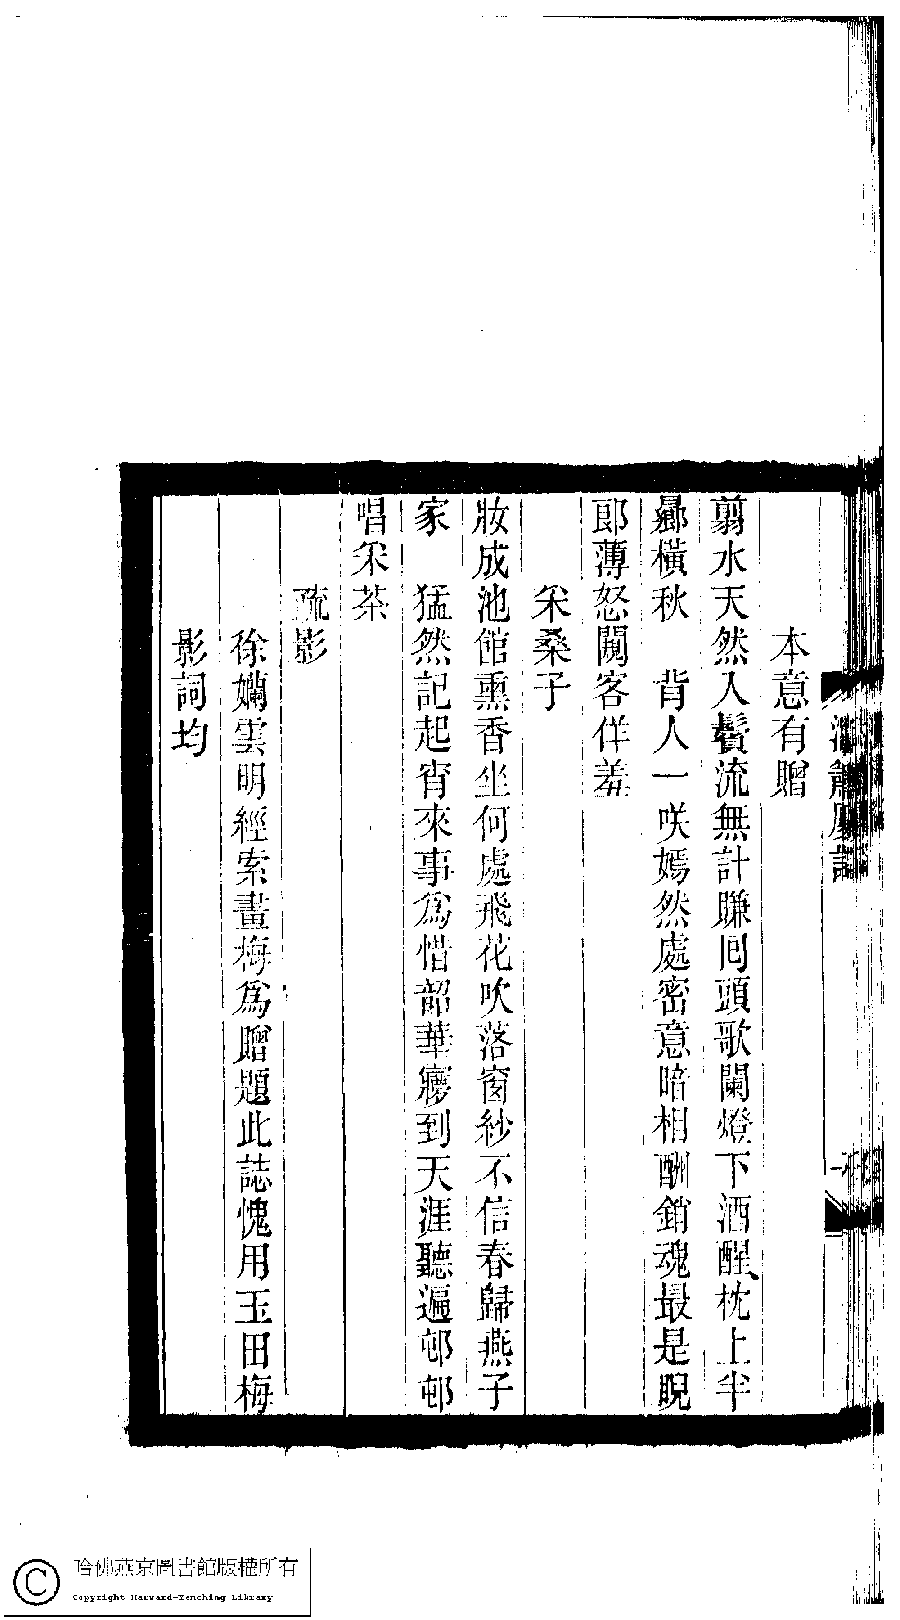 本意有贈
翦水天然入鬢流無計賺囘頭歌闌燈下酒醒枕上半
橫秋　背人一咲嫣然處密意暗相酬銷魂最是睨
郎薄怒閙客佯羞
采桑子
妝成池館熏香坐何處飛花吹落窗紗不信春歸燕子
家　猛然記起宵來事爲惜韶華㝱到天涯聽遍邨邨
唱采茶
疏影
徐孏雲明經索畫梅爲贈題此誌愧用玉田梅
影詞均
哈佛燕京圖書館版權所有
Copyright Harvard-Yenching Library